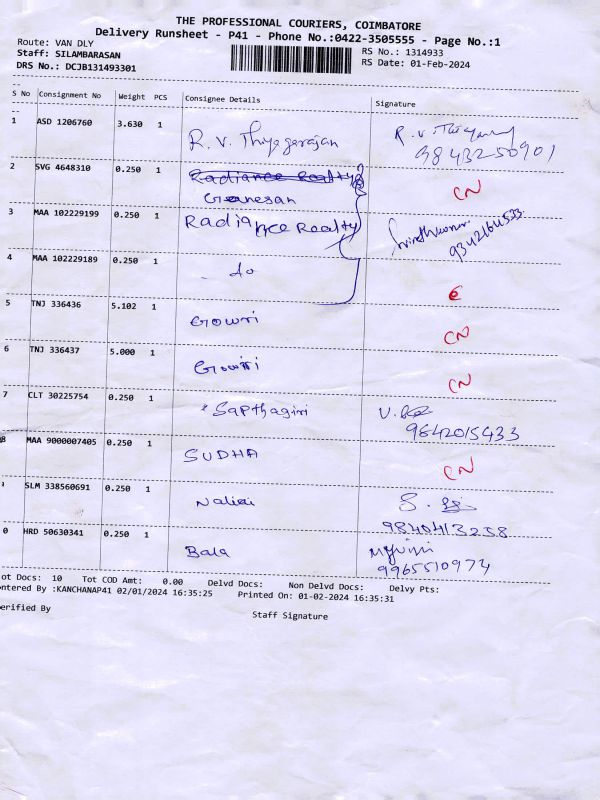 THE PROFESSIONAL COURIERS, COIMBATORE
Delivery Runsheet - P41 - Phone No.:0422-3505555 - Page No.:1
Route: VAN DLY
RS No.: 1314933
Staff: SILAMBARASAN
RS Date: 01-Feb-2024
DRS No.: DCJB131493301
S No Consignment No Weight PCS Consignee Details Signature
1 ASD 1206760 3.630 1 R. V. Thiyagarajan
9843250901
2 SVG 4648310 0.250 1 Radiance Realty
Ganesan CN
3 MAA 102229199 0.250 1 Radiance Realty
9342164533
4 MAA 102229189 0.250 1 do
5 TNJ 336436 5.102 1 Gowri CN
6 TNJ 336437 5.000 1 Gowri CN
7 CLT 30225754 0.250 1 Sapthagiri
9842015433
8 MAA 9000007405 0.250 1 SUDHA CN
SLM 338560691 0.250 1 Nalini
9840413258
0 HRD 50630341 0.250 1 Bala
9965510974
ot Docs: 10 Tot COD Amt: 0.00 Delvd Docs: Non Delvd Docs: Delvy Pts:
ntered By :KANCHANAP41 02/01/2024 16:35:25 Printed On: 01-02-2024 16:35:31
erified By Staff Signature